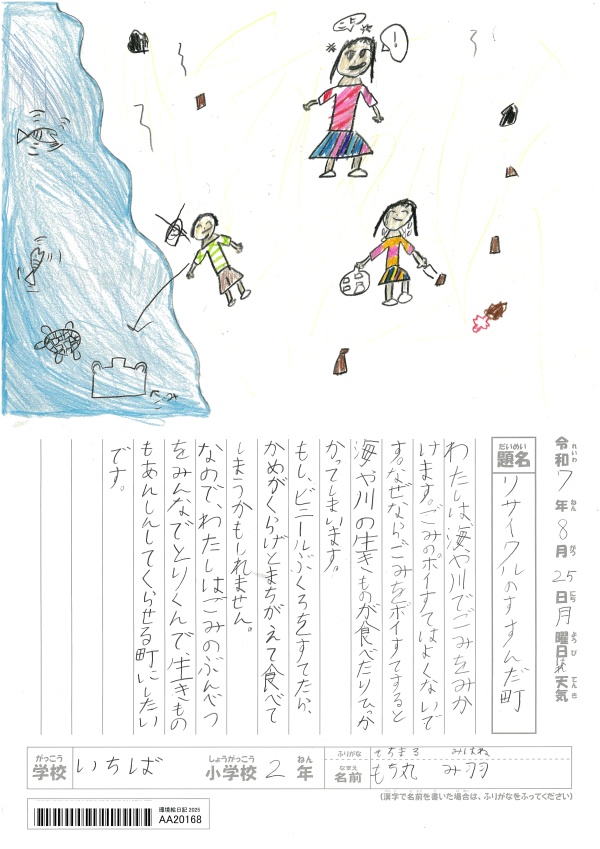 ニコッ
!
令和7年8月25日月曜日はれ天気
れいわ ねん がつ にち ようび てんき
だいめい
題名
リサイクルのすすんだ町
わたしは海や川でごみをみか
けます。ごみのポイすてはよくないで
す。なぜなら、ごみをポイすてすると
海や川の生きものが食べたりひっか
かってしまいます。
もし、ビニールぶくろをすてたら、
かめがくらげとまちがえて食べて
しまうかもしれません。
なので、わたしはごみのぶんべつ
をみんなでとりくんで、生きもの
もあんしんしてくらせる町にしたい
です。
がっこう しょうがっこう ねん
学校 いちば 小学校 2 年
ふりがな もちまる みはね
なまえ
名前 もち丸 み羽
(漢字で名前を書いた場合は、ふりがなをふってください)
環境絵日記 2025
AA20168